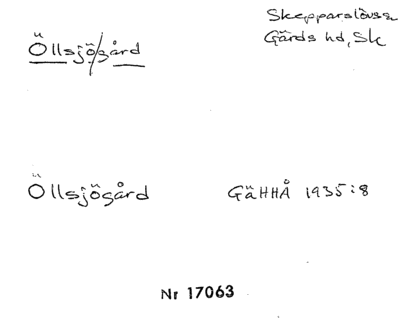 Öllsjö/gård
Skepparslövs sn
Gärds hd, Sk
Öllsjögård
GäHHÅ 1935:8
Nr 17063